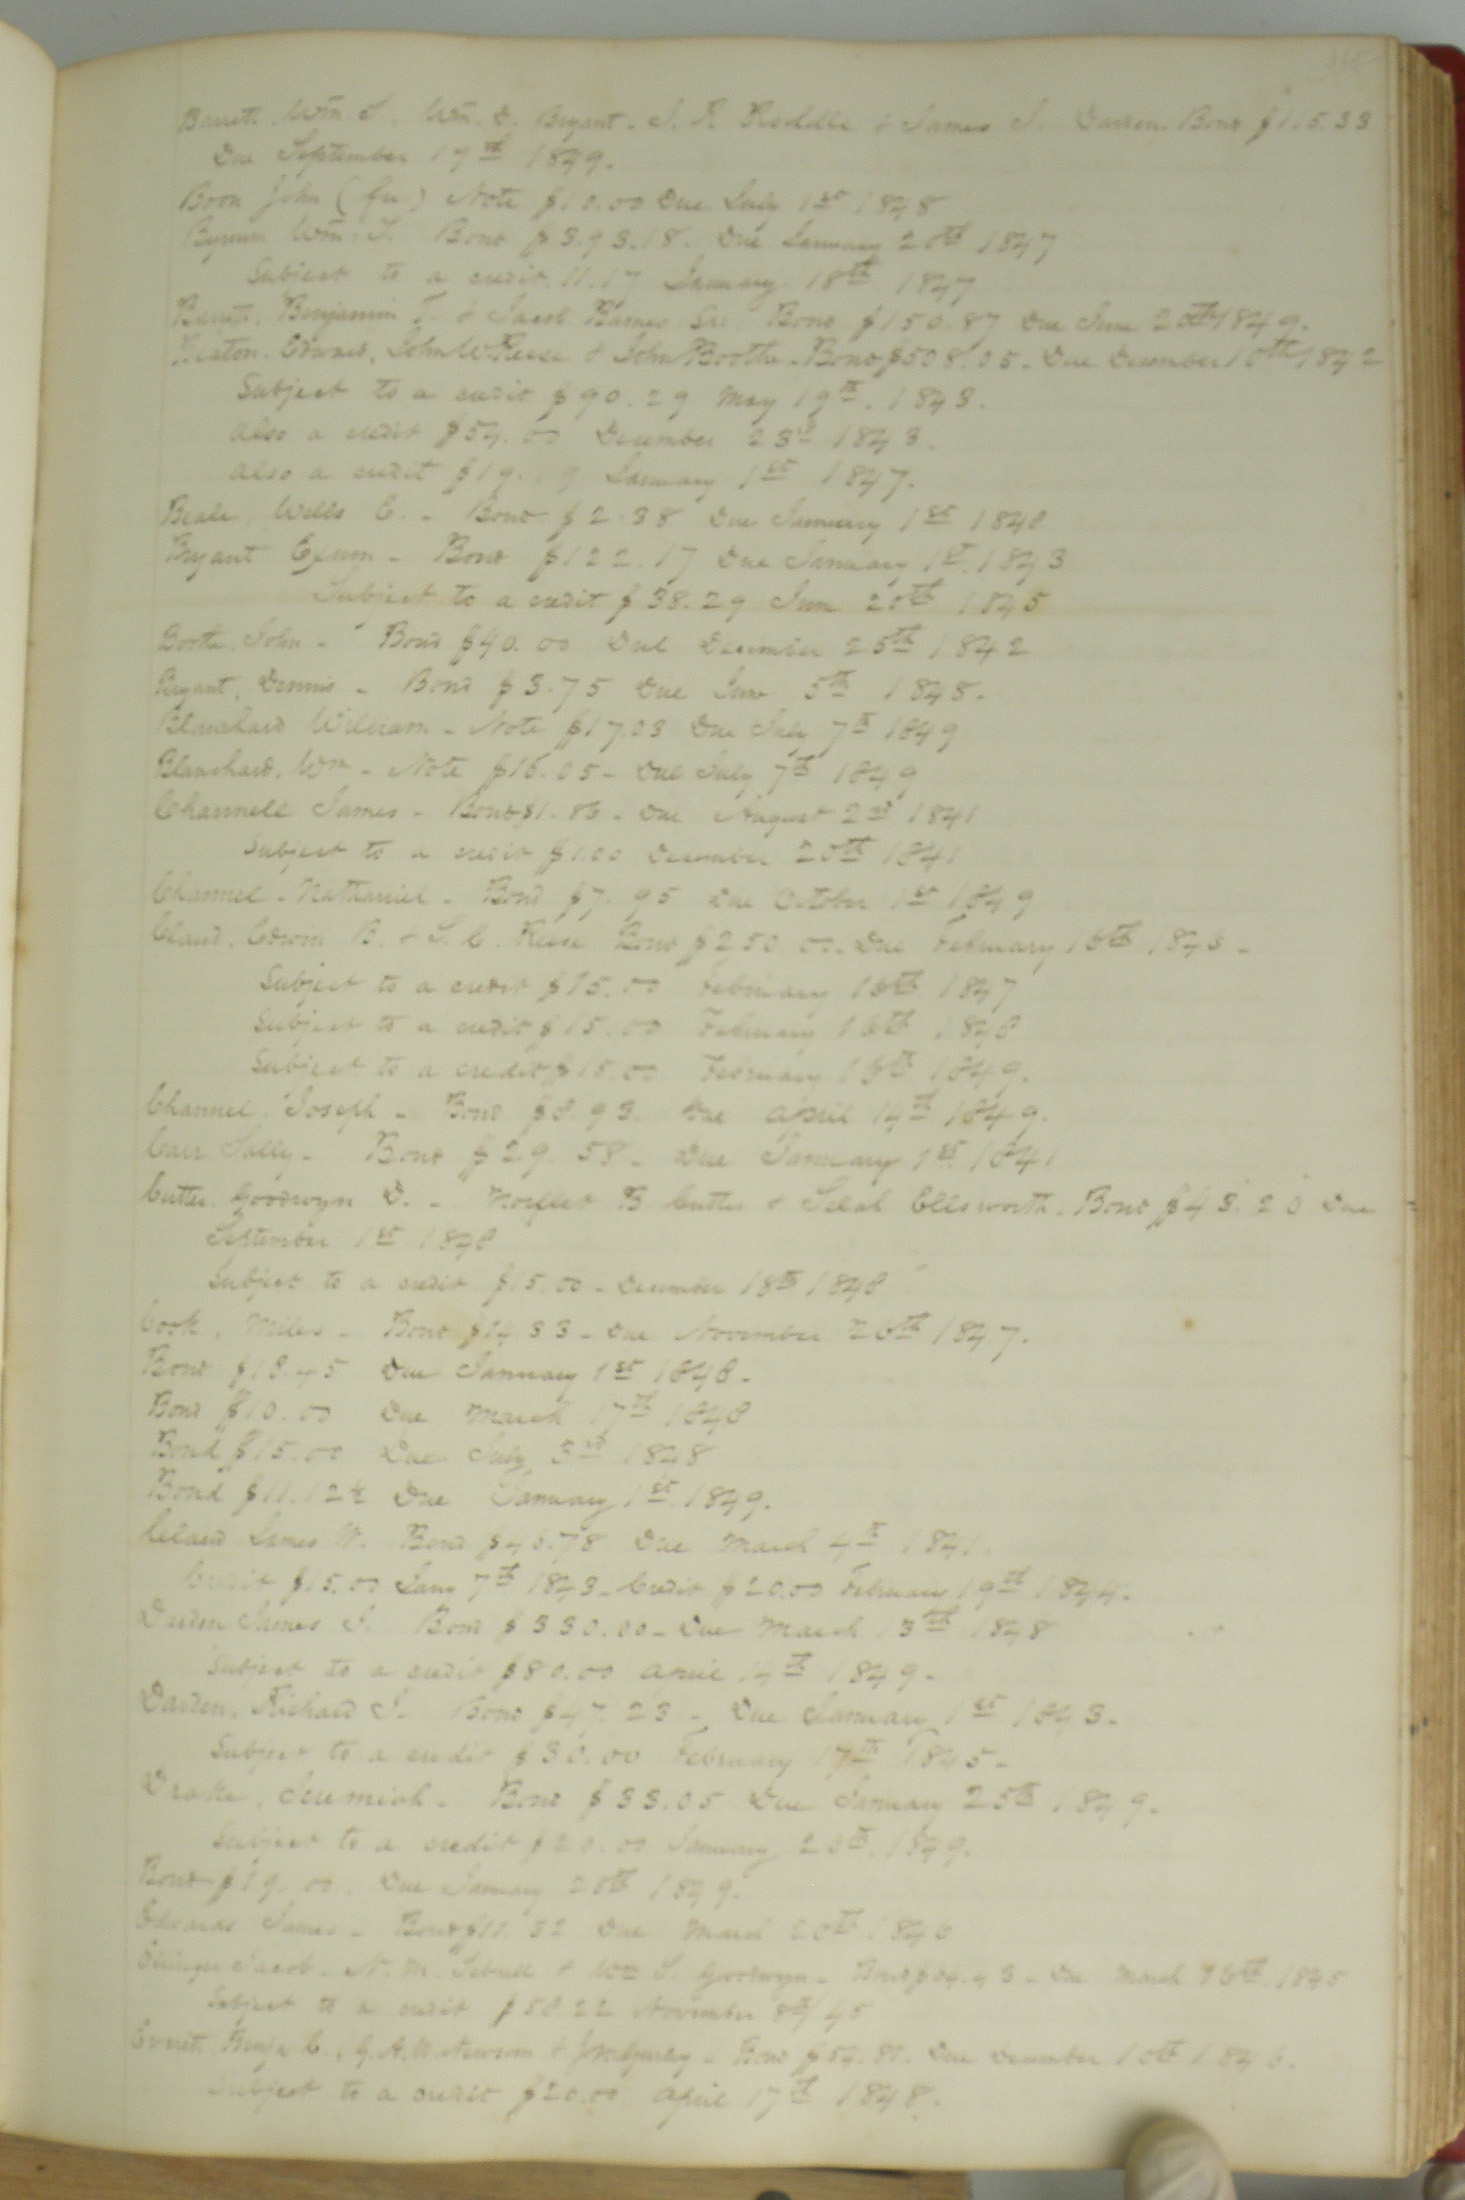 Barrett, Wm. S. Wm. D. Bryant. J. R. & James J. Darden. Bond $1.5.33
Due September 19th 1849.
Boon John (fu) Note $10.00 Due July 1st 1848
Bynum Wm. S. Bond $3.93.18. Due January 20th 1847
Subject to a credit 11.17 January 18th 1847
Barrett, Benjamin T. & Jacob Barnes Sr. Bond $150.87 Due June 20th 1849.
Beaton, Edward, John W Reese & John Boothe. Bond $508.05. Due December 10th 1842
Subject to a credit $90.29 May 19th. 1843.
also a credit $54.00 December 23rd 1843.
also a credit $19.19 January 1st 1847.
Beale, Wells C. - Bond $2.38 Due January 1st 1848
Bryant Exum - Bond $122.17 Due January 1st. 1843
Subject to a credit $38.29 June 20th 1845
Boothe, John - Bond $40.00 Due December 25th 1842
Bryant, Dennis - Bond $3.75 Due June 5th 1848.
Blanchard William - Note $17.03 Due July 7th 1849
Blanchard, Wm - Note $16.05 - Due July 7th 1849
Channell James - Bond $1.86 - Due August 2nd 1841
Subject to a credit $1.00 December 20th 1841
Channel - Nathaniel - Bond $7.95 Due October 1st 1849
Claud, Edwin B. & S. C. Reese Bond $250.00. Due February 16th 1846 -
Subject to a credit $15.00 February 16th 1847
Subject to a credit $15.00 February 16th 1848
Subject to a credit $15.00 February 16th 1849.
Channel, Joseph - Bond $8.93. Due April 14th 1849.
Carr Sally - Bond $29.58 - Due January 1st. 1841
Cutter, Goodwyn D. - Norfleet B. Cutter & Selah Ellsworth. Bond $43.20 Due
September 1st 1848
Subject to a credit $15.00 - December 18th 1848
Cook, Miles - Bond $14.33 - Due November 26th 1847.
Bond $18.45 Due January 1st 1848.
Bond $10.00 Due March 17th 1848
Bond $15.00 Due July 3rd 1848
Bond $11.12½ Due January 1st. 1849.
Claud James W. Bond $46.78 Due March 4th 1841.
Credit $15.00 Jany 7th 1843 - Credit $20.00 February 19th 1844.
Darden James J. Bond $330.00 - Due March 13th 1848
Subject to a credit $80.00 April 14th 1849 -
Darden, Richard J. Bond $47.23 - Due January 1st 1843 -
Subject to a credit $30.00 February 17th 1845 -
Drake, Jeremiah. Bond $33.05 Due January 25th 1849.
Subject to a credit $20.00 January 20th. 1849.
Bond $19.00. Due January 20th 1849.
Edwards James - Bond $11.32 Due March 20th 1846
Jacob - N. M. Sebrell & Wm S. Goodwyn - Bond $64.43 - Due March 16th. 1845
Subject to a credit $50.22 November 8th/45
Everett, Benja C., G. A. W. Newsom & - Bond $54.81. Due December 10th 1846.
Subject to a credit $20.00 April 17th 1848.